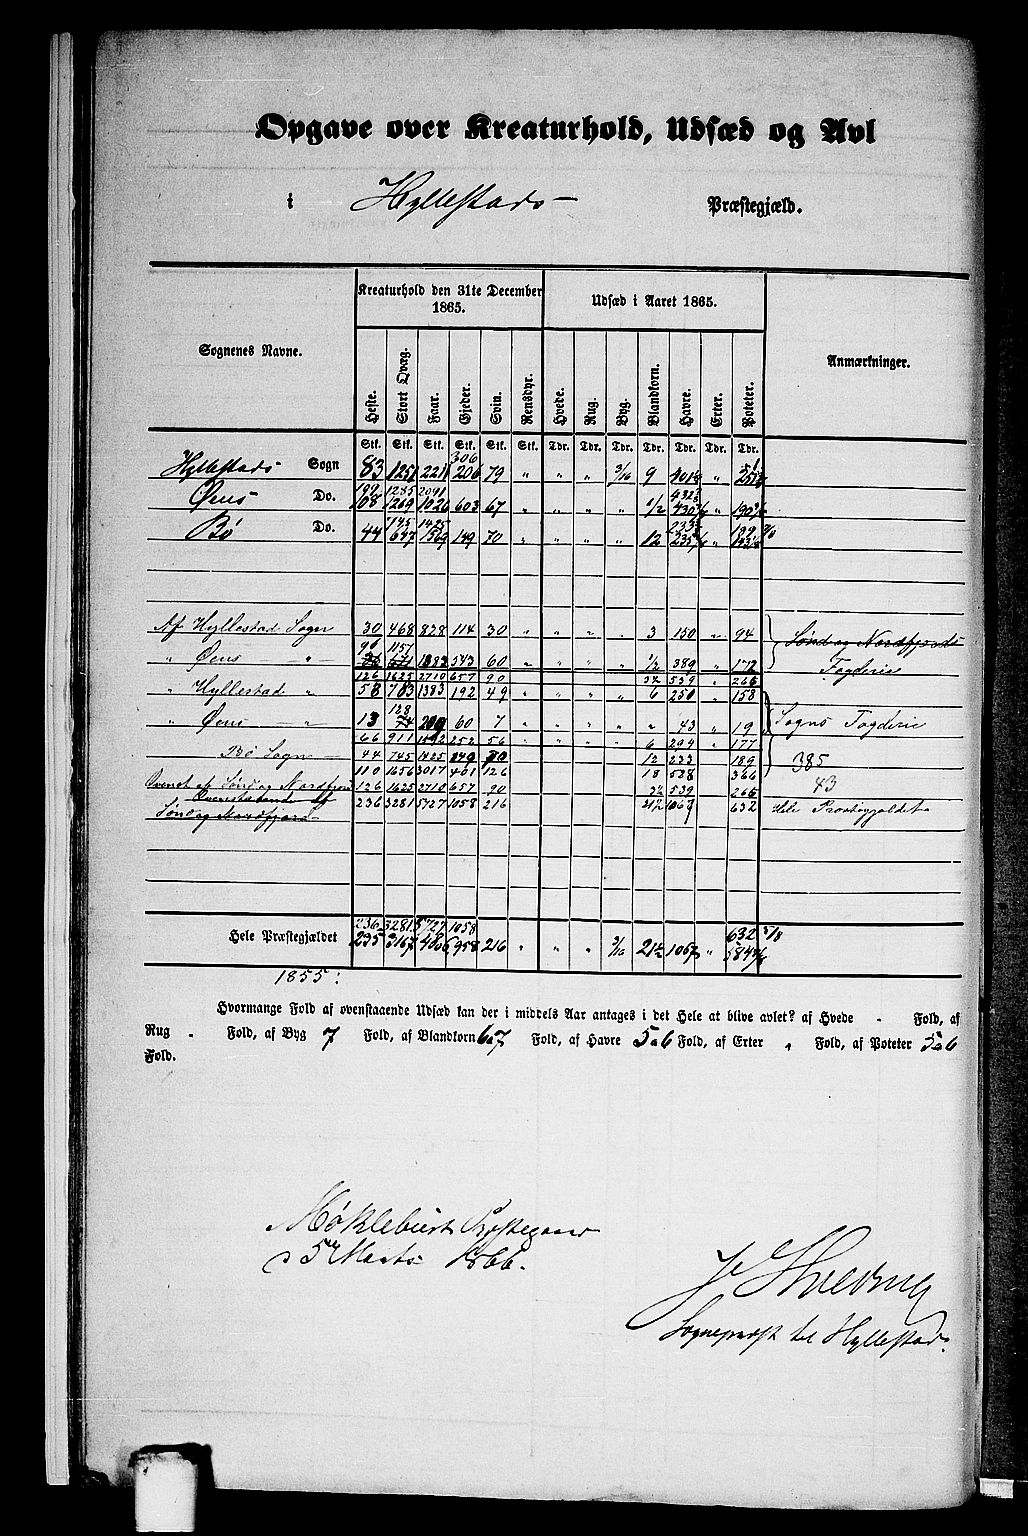 Opgave over Kreaturhold, Udsæd og Avl
i Hyllestads Præstegjæld.
Sognenes Navne. Kreaturhold den 31te December 1865. Udsæd i Aaret 1865. Anmærkninger.
Heste. Stort Qvæg. Faar. Gjeder. Sviin. Rensdyr. Hvede. Rug. Byg. Blandkorn. Havre. Erter. Poteter.
Stk. Stk. Stk. Stk. Stk. Stk. Tdr. Tdr. Tdr. Tdr. Tdr. Tdr. Tdr.
306
Hyllestads Sogn 83 1251 2211 206 79 " " " 3/16 9 "
1285 2091
Øens Do. 108 1269 1026 603 67 " " " " 1/2 "
745 1425
Bø Do. 44 647 1569 149 70 " " " " 12 "
Af Hyllestad Sogn 30 468 828 114 30 " " " " 3 150 " 94 Sønd og Nordfjords
90 1157
" Øens — " — 543 60 1/2 389 " 172 Fogderie
126 1625 2710 657 90 539 266
" Hyllestad " 58 783 1383 192 49 " " " " 6 250 " 158
128
" Øens — " 13 74 200 60 7 " " " " " 43 " 19 Sogns Fogderie
66 911 1592 252 56 6 294 " 177
Bø Sogn — 44 745 1425 149 70 12 233 189 385
110 1656 3017 401 126 18 528 366 43
Sønd og Nordfjord 126 1625 2710 657 90 539 266
236 3281 5727 1058 216 21½ 1067 632 Hele Præstegjeldet
Sønd og Nordfjord
236 3281 5727 1058 632
Hele Præstegjældet 235 3167 4806 958 216 " " " 3/16 21½ 1067 "
1855:
Hvormange Fold af ovenstaaende Udsæd kan der i middels Aar antages i det Hele at blive avlet? af Hvede " Fold, af
Rug " Fold, af Byg 7 Fold, af Blandkorn 6a7 Fold, af Havre 5a6 Fold, af Erter " Fold, af Poteter 5a6
Fold.
Møklebust Præstegaard
d 5te Marts 1866.
Sognepræst til Hyllestad.